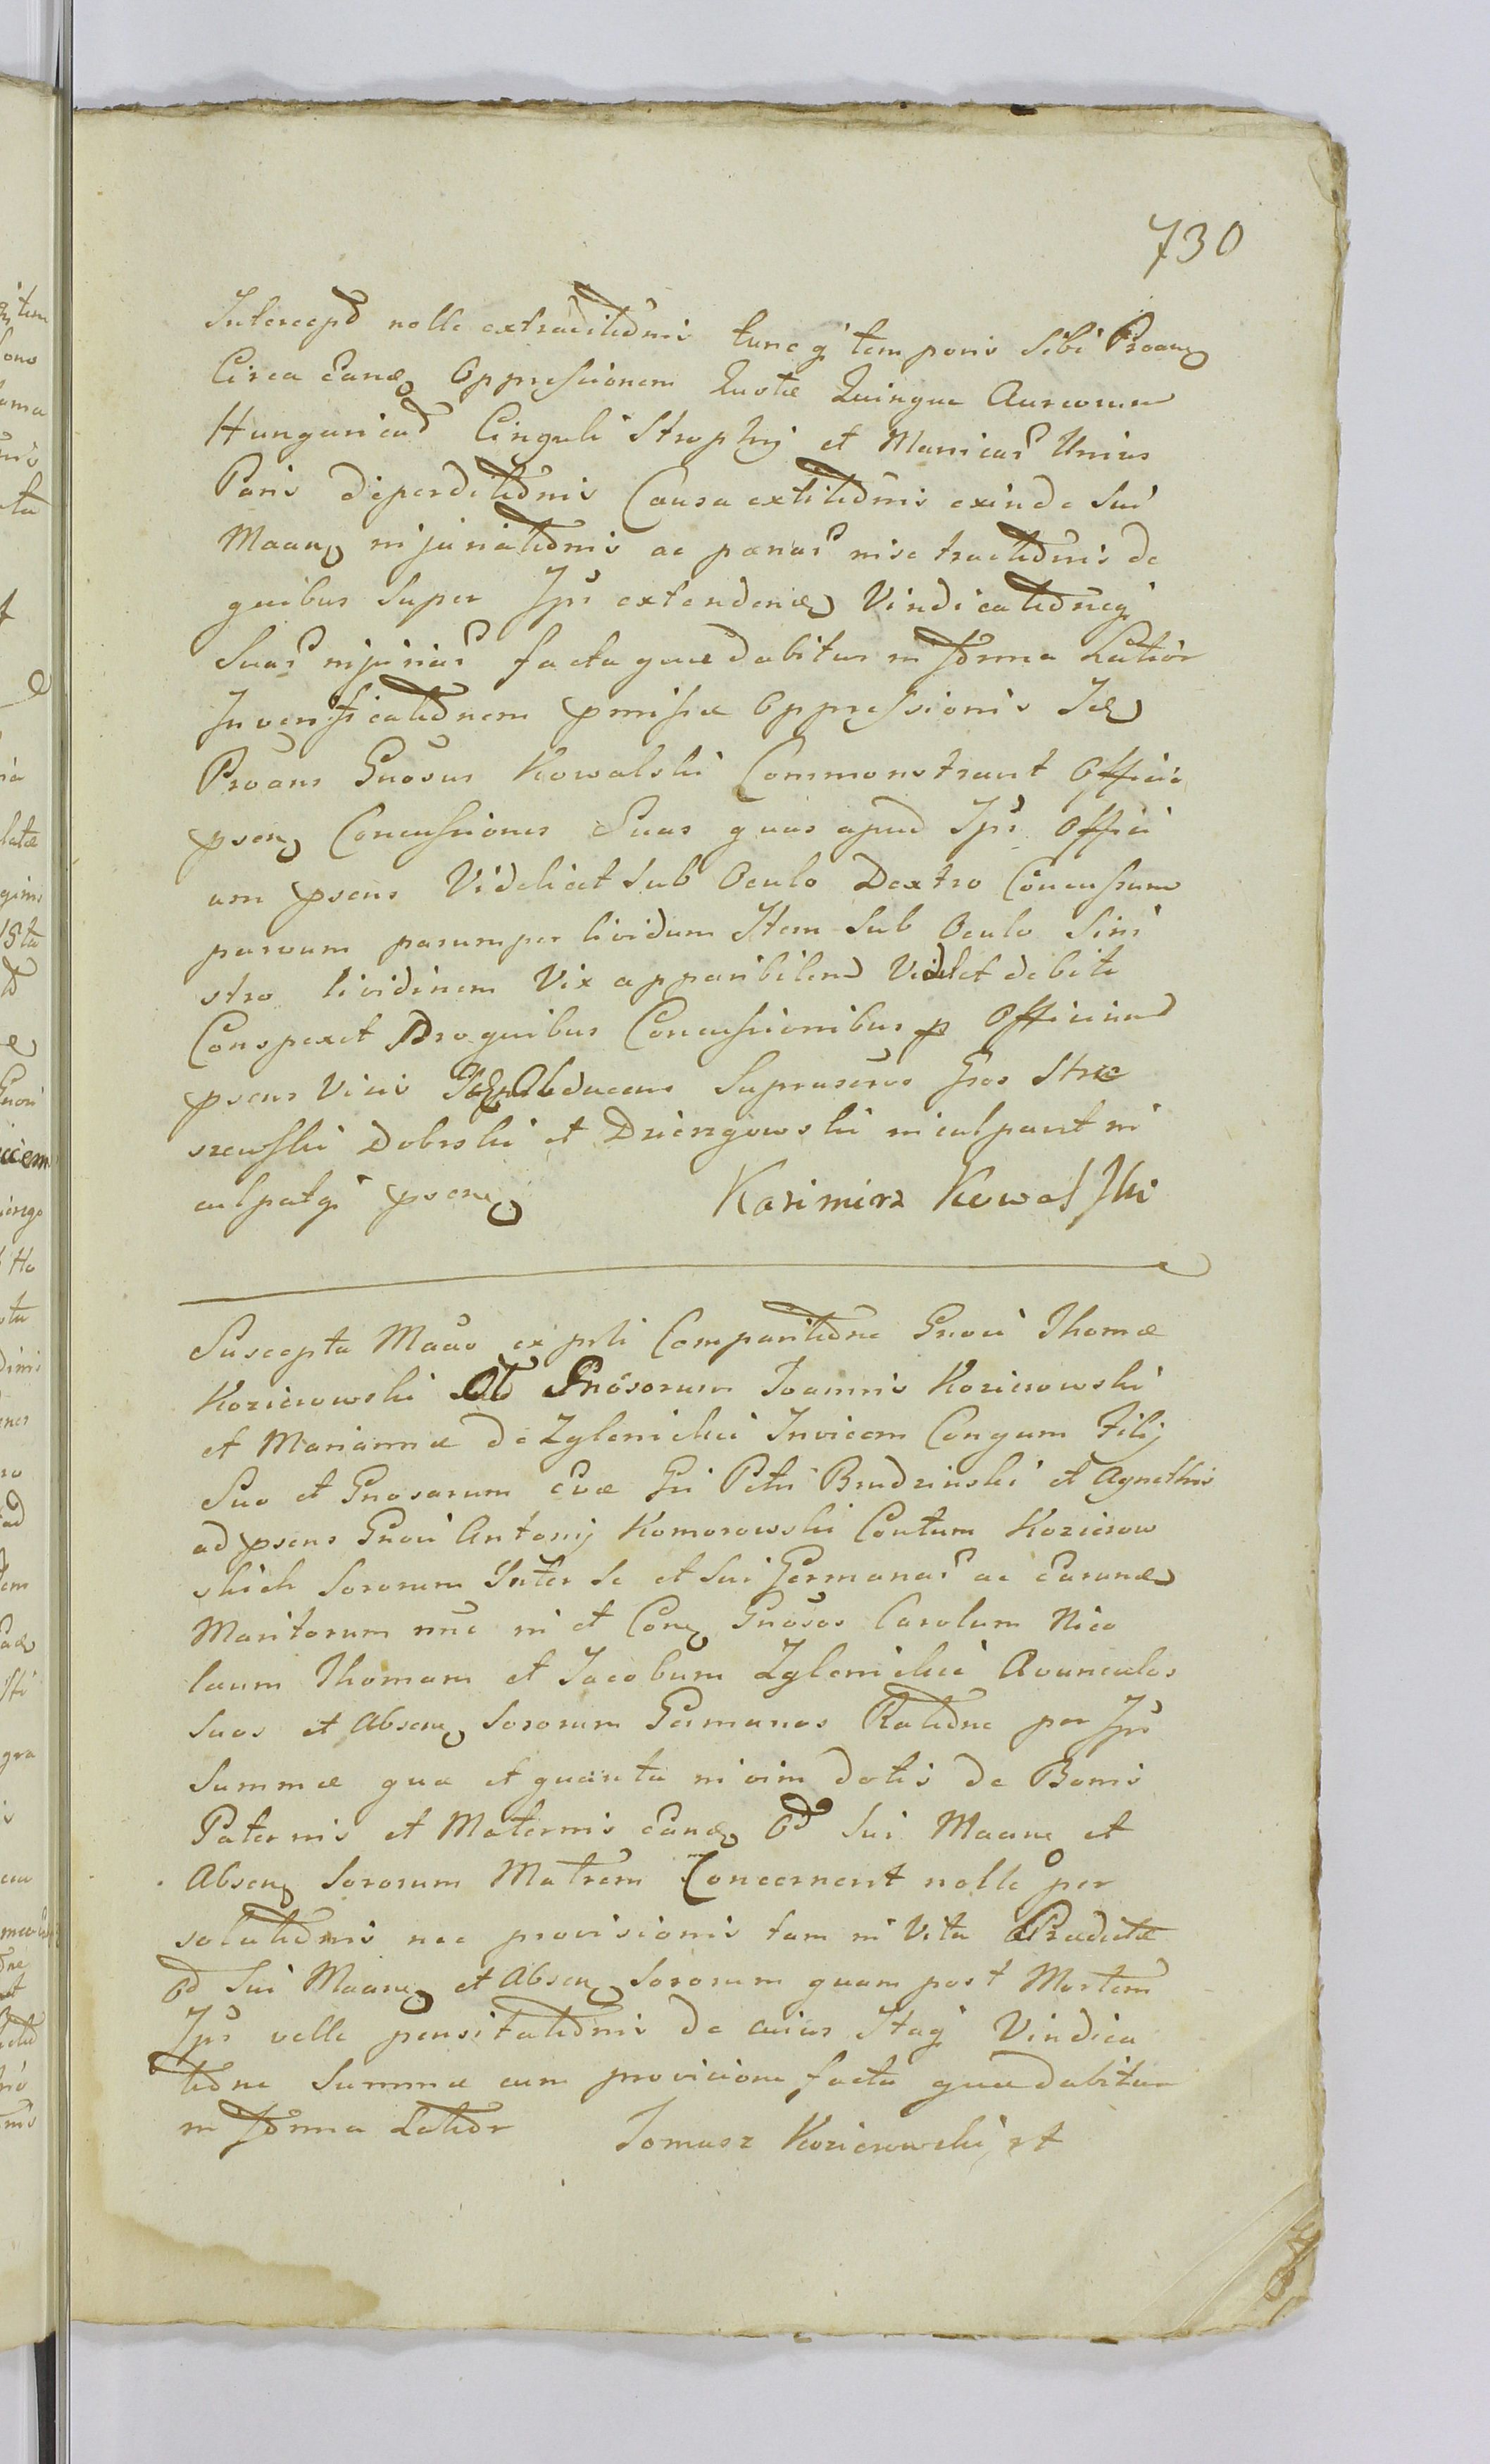 730
Intercepd nolle extraditiõnis tunc q' temporis Sibi Proaneg
Circa Eang Oppressionem Quotæ Quinque Aureorum
Hungaricad Cinguli Strophij et Manicar Unius
Paris deperditiõnis Causa extitiõnis exinde Sui
Maang injuriatiõnis ac pænar mise tractiõnis de
quibus Super Ipŝ extendend Vindicatiõneq'
Suar injuriar facta quæ dabitur in fõrma Latiõr
In verificatiõnem pmissæ Oppressionis Id
Proans Gnõsus Kowalski Commonstravit Officio
pseng Concussiones Suas quas apud Ipŝ Offici
um psens Videlicet Sub Oculo Dextro Concussum
parvum parumper lividum Item Sub Oculo Sini
stro lividinem Vix apparibilem Videlet debite
Conspexit Pro quibus Concussionibus p Officium
psens Visis Obducens Suprascros Gros Strze
szewski Dobrski et Dziergowski inculpavit in
culpatq' pseng Kazimirz Kowalski
Suscepta Maão ex psti Comparitiõne Gnõsi Thomæ
Kozierowski Olb Gnõsorum Joannis Kozierowski
et Mariannæ de Zglenickie Invicem Congum Filij
Suo et Gnosarum Evæ Gsi Petri Brudzinski et Agnethis
ad psens Gnosi Antonij Komorowski Contum Kozierow
skich Sororum Inter Se et Sui Germanar ac Earumd
Maritorum nnẽ in et Cong Gnõsos Carolum Nico
laum Thomam et Jacobum Zglenickie Avunculos
Suos et Abseng Sororum Germanos Ratiõne per Ipŝ
Summæ quæ et quanta in vim dotis de Bonis
Paternis et Maternis Eand Od Sui Maane et
Abseng Sororum Matrem Concernerit nolle per
solutiõnis nec provisionis tam in Vita Prædictæ
Od Sui Maang et Abseng Sororum quam post Mortem
Ipŝ velle pensitatiõnis de cuius Itaq' Vindica
tiõne Summæ cum provicione facta quæ dabitur
in fõrma Latiõr Tomasz Kozierowski